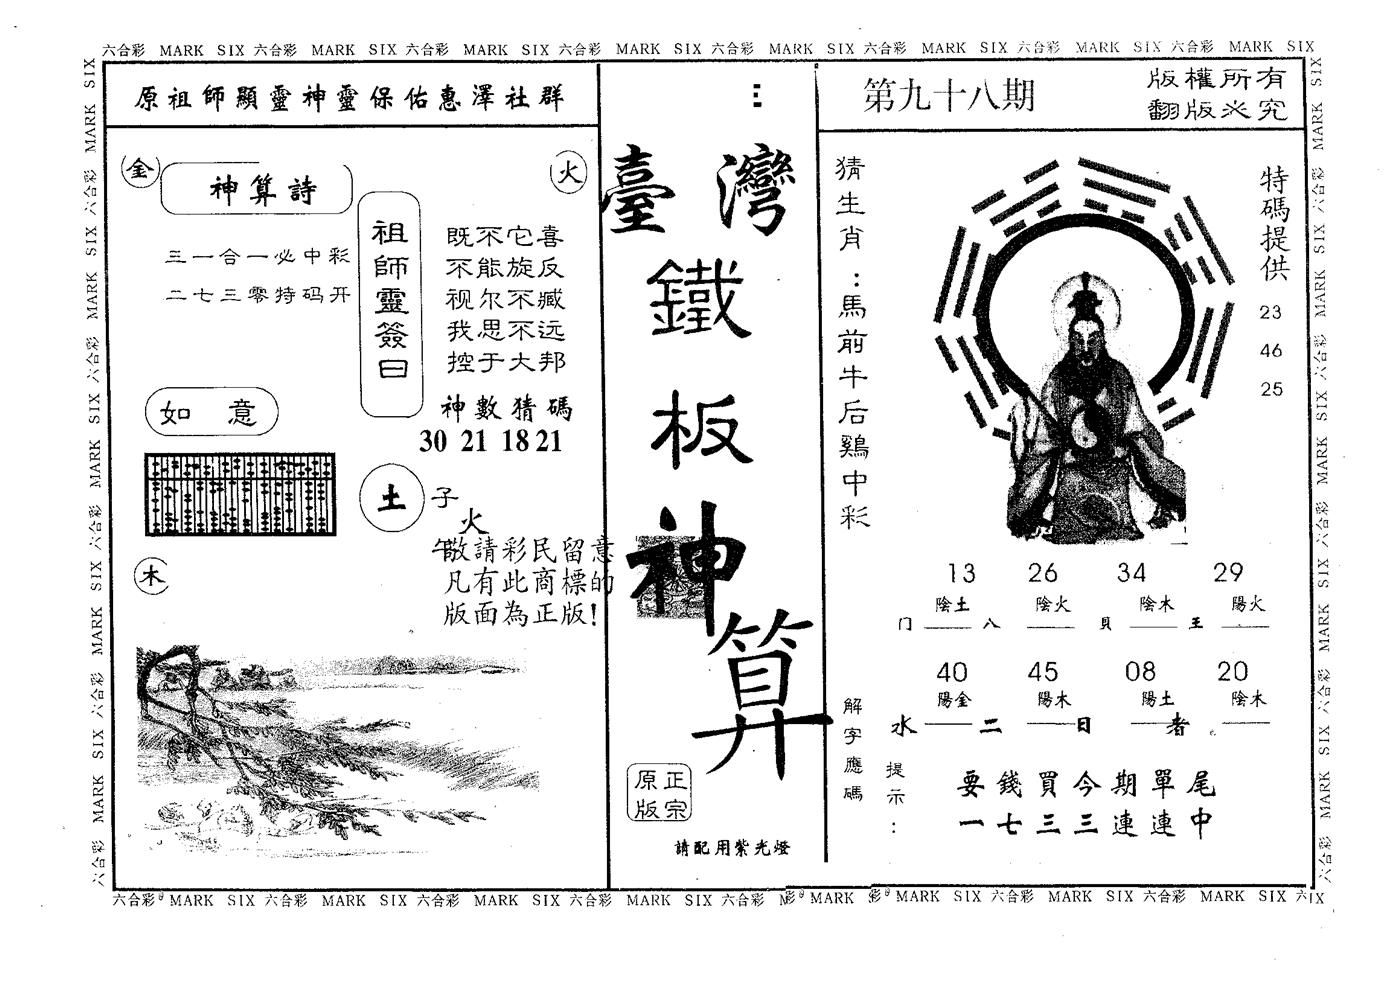 六合彩 MARK SIX 六合彩 MARK SIX 六合彩 MARK SIX 六合彩 MARK SIX 六合彩 MARK SIX 六合彩 MARK SIX 六合彩 MARK SIX 六合彩 MARK SIX
原祖師顯靈神靈保佑惠澤社群
金
神算詩
火
三一合一必中彩
二七三零特码开
祖師靈簽曰
既不它喜
不能旋反
视尔不臧
我思不远
控于大邦
神數猜碼
30 21 18 21
如意
土
子
火
午
敬請彩民留意
凡有此商標的
版面為正版!
木
臺灣
鐵
板
神
算
正宗
原版
請配用紫光燈
第九十八期
版權所有
翻版必究
猜生肖:馬前牛后鷄中彩
特碼提供
23
46
25
13 26 34 29
陰土 陰火 陰木 陽火
门 八 貝 王
40 45 08 20
陽金 陽木 陽土 陰木
水 二 日 者
解字應碼
提示:
要錢買今期單尾
一七三三連連中
六合彩 MARK SIX 六合彩 MARK SIX 六合彩 MARK SIX 六合彩 MARK SIX 六合彩 MARK SIX 六合彩 MARK SIX 六合彩 MARK SIX 六合彩 MARK SIX